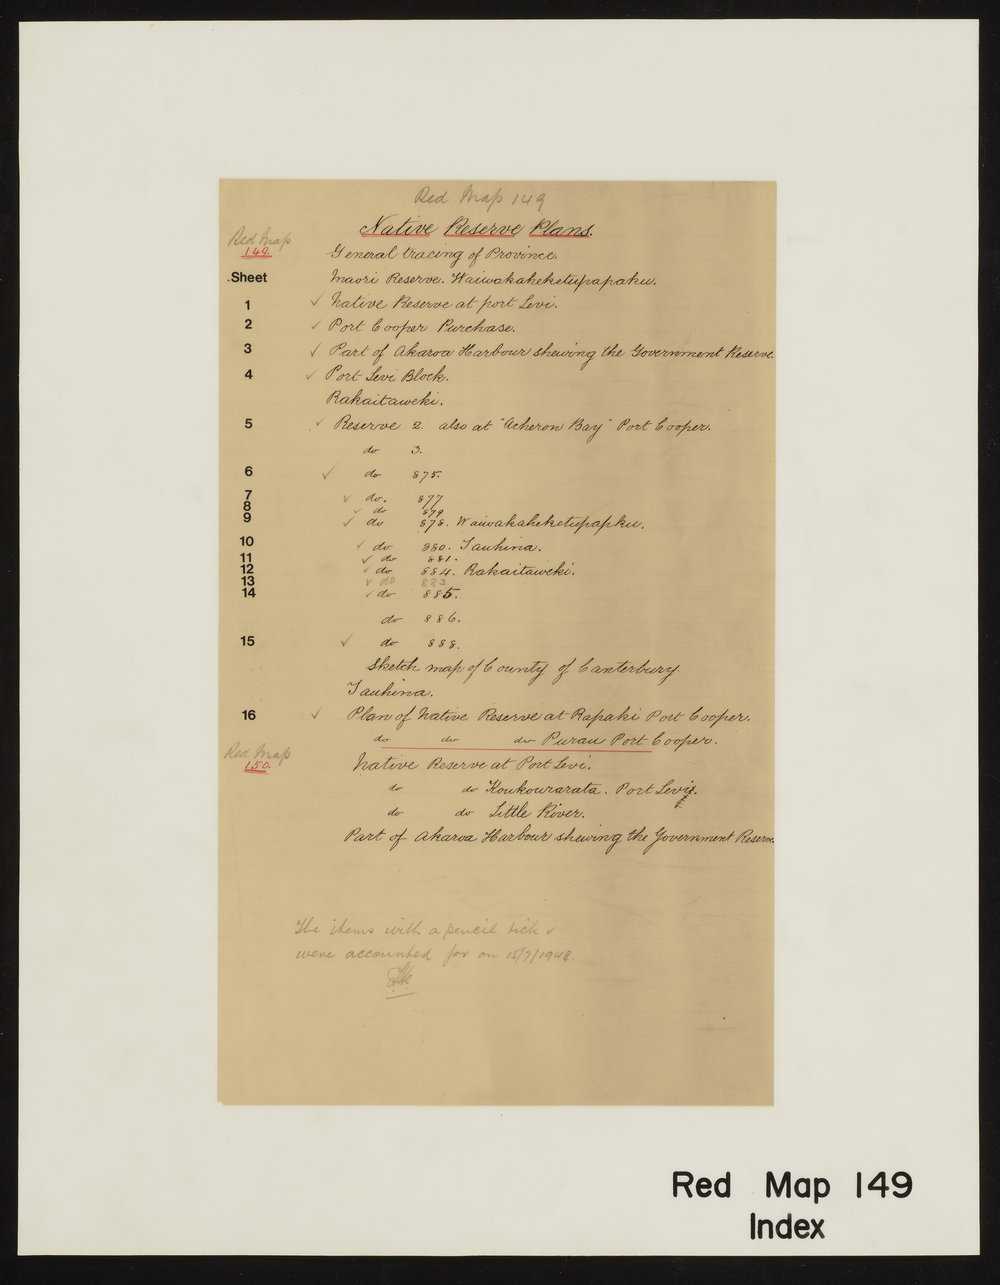 Red Map 149
Native Reserve Plans.
Red Map
149.
General tracing of Province.
Sheet Maori Reserve. Waiwakaheketupapaku.
1 ✓ Native Reserve at port Levi.
2 ✓ Port Cooper Purchase.
3 ✓ Part of Akaroa Harbour shewing the Government Reserve
4 ✓ Port Levi Block.
Rakaitaweki.
5 ✓ Reserve 2. also at "Acheron Bay" Port Cooper.
do 3.
6 ✓ do 875.
7 ✓ do. 877
8 ✓ do 879
9 ✓ do 878. Waiwakaheketupapku.
10 ✓ do 880. Tauhina.
11 ✓ do 881.
12 ✓ do 884. Rakaitaweki.
13 ✓ do 883
14 ✓ do 885.
do 886.
15 ✓ do 888.
Sketch map of County of Canterbury
Tauhina.
16 ✓ Plan of Native Reserve at Rapaki Port Cooper.
do do do Purau Port Cooper.
Red Map
150.
Native Reserve at Port Levi.
do do Koukourarata. Port Levi.
do do Little River.
Part of Akaroa Harbour shewing the Government Reserve.
The items with a pencil tick ✓
were accounted for on 15/7/1948.
Red Map 149
Index